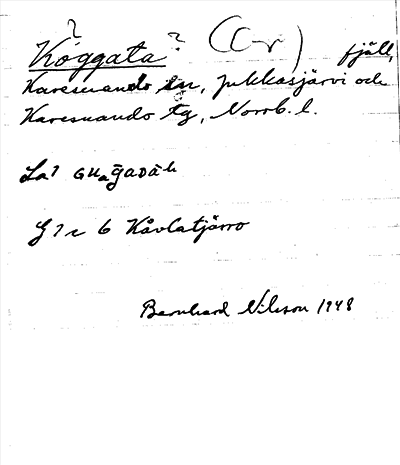 ?
Köggata ? (C-r) fjäll,
Karesuando sn, Jukkasjärvi och
Karesuando tg, Norrb. l.
La7
G 7 c 6 Kåvlatjårro
Bernhard Nilsson 1948